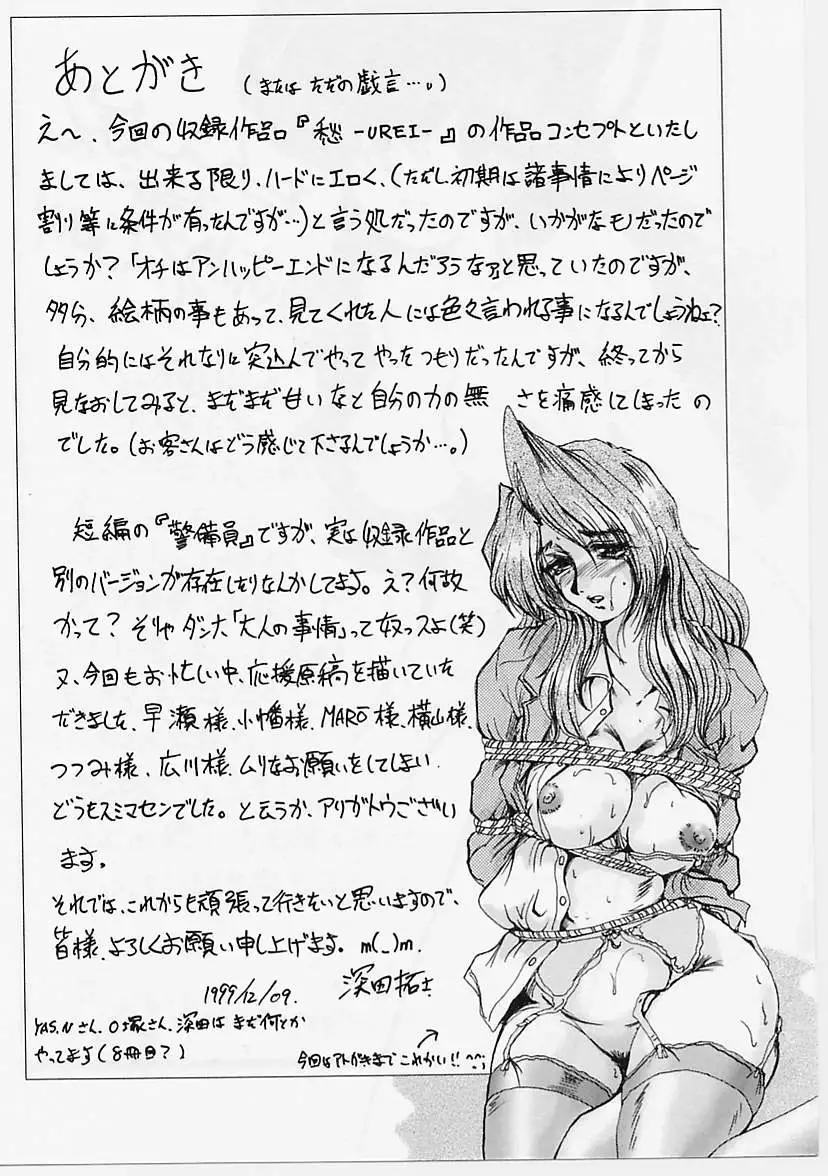 あとがき (またはただの戯言…。)
え〜、今回の収録作品『愁 -UREI-』の作品コンセプトといたし
ましては、出来る限り、ハードにエロく、(ただし初期は諸事情によりページ
割り等に条件が有ったんですが…)と言う処だったのですが、いかがなモノだったので
しょうか?「オチはアンハッピーエンドになるんだろうなァ」と思っていたのですが、
多分、絵柄の事もあって、見てくれた人には色々言われる事になるんでしょうねェ?
自分的にはそれなりに突込んでやってやったつもりだったんですが、終ってから
見なおしてみると、まだまだ甘いなと自分の力の無さを痛感してしまったの
でした。(お客さんはどう感じて下さるんでしょうか…。)
短編の『警備員』ですが、実は収録作品と
別のバージョンが存在したりなんかしてます。え?何故
かって?そりゃダンナ「大人の事情」って奴っスよ(笑)
又、今回もお忙しい中、応援原稿を描いていた
だきました、早瀬様、小幡様、MARO様、横山様、
つつみ様、広川様、ムリなお願いをしてしまい
どうもスミマセンでした。と云うか、アリガトウござい
ます。
それでは、これからも頑張って行きたいと思いますので、
皆様、よろしくお願い申し上げます。m(_)m.
1999/12/09. 深田拓士
YAS.Nさん、O塚さん、深田はまだ何とか
やってます(8冊目?)
今回はアトがきまでこれかい!! ^^;